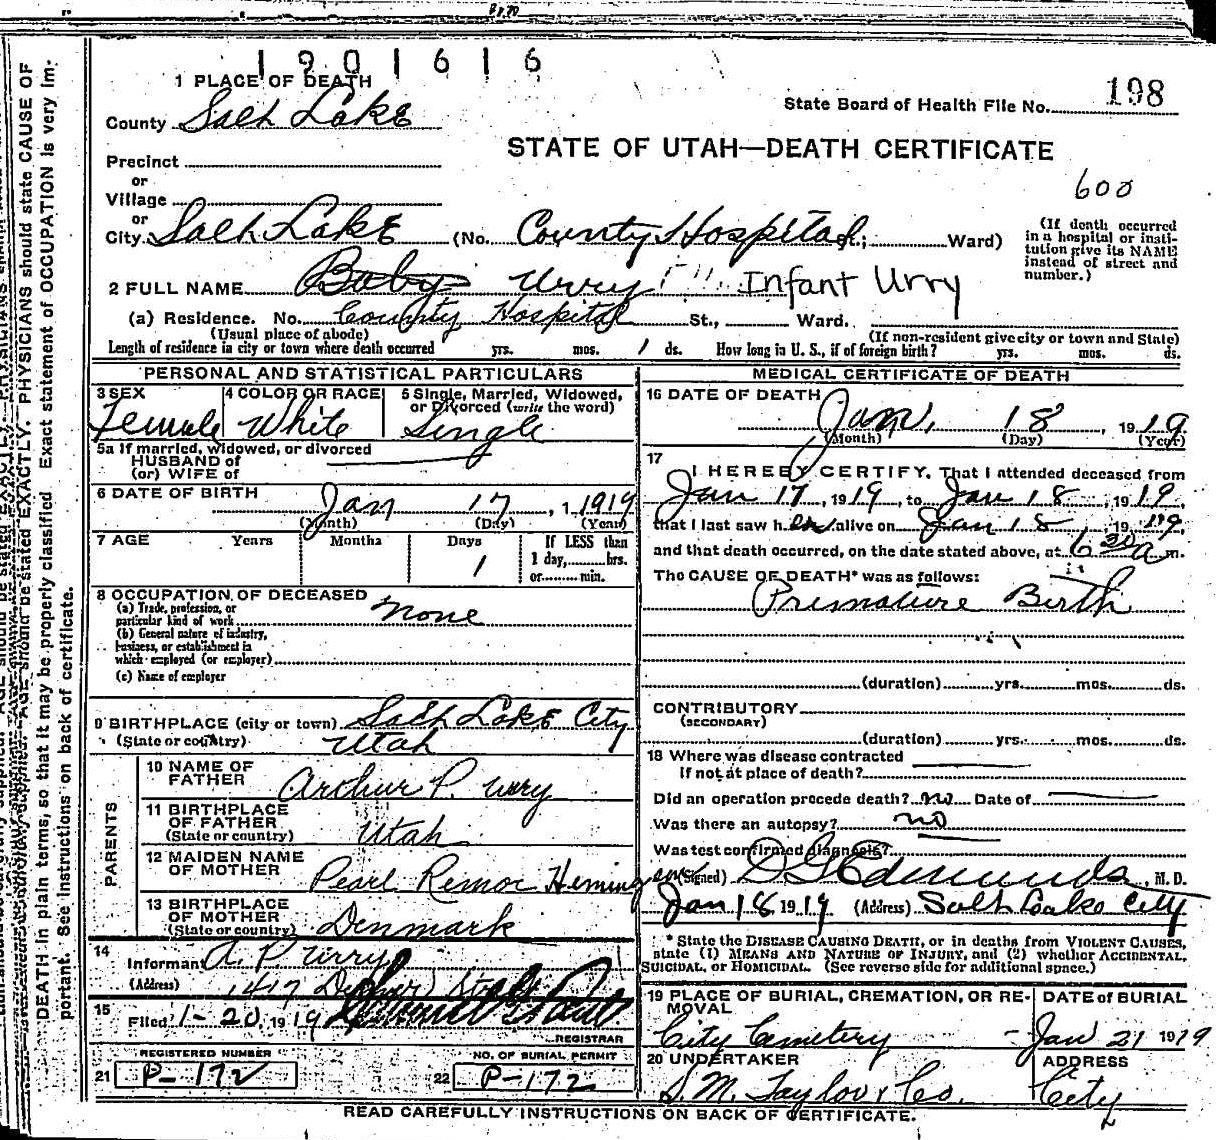 1901616
1 PLACE OF DEATH
State Board of Health File No. 198
County Salt Lake
STATE OF UTAH—DEATH CERTIFICATE
Precinct
or
600
Village
or
City Salt Lake (No. County Hospital St.; Ward)
(If death occurred in a hospital or insti-
tution give its NAME
instead of street and
number.)
2 FULL NAME Baby Urry Infant Urry
(a) Residence. No. County Hospital St., Ward.
(Usual place of abode) (If non-resident give city or town and State)
Length of residence in city or town where death occurred yrs. mos. 1 ds. How long in U. S., if of foreign birth? yrs. mos. ds.
PERSONAL AND STATISTICAL PARTICULARS
3 SEX Female
4 COLOR OR RACE White
5 Single, Married, Widowed,
or Divorced (write the word)
Single
5a If married, widowed, or divorced
HUSBAND of
(or) WIFE of
6 DATE OF BIRTH Jan 17, 1 1919
(Month) (Day) (Year)
7 AGE Years Months Days 1 If LESS than
1 day, hrs.
or min.
8 OCCUPATION OF DECEASED
(a) Trade, profession, or
particular kind of work none
(b) General nature of industry,
business, or establishment in
which employed (or employer)
(c) Name of employer
9 BIRTHPLACE (city or town) Salt Lake City
(State or country) Utah
PARENTS
10 NAME OF
FATHER Arthur P. Urry
11 BIRTHPLACE
OF FATHER
(State or country) Utah
12 MAIDEN NAME
OF MOTHER Pearl
13 BIRTHPLACE
OF MOTHER
(State or country) Denmark
14
Informant A. P Urry
(Address) 1417
15
Filed 1-20, 1919
REGISTRAR
REGISTERED NUMBER
21 P-172
NO. OF BURIAL PERMIT
22 P-172
MEDICAL CERTIFICATE OF DEATH
16 DATE OF DEATH
Jan. 18, 1919
(Month) (Day) (Year)
17
I HEREBY CERTIFY, That I attended deceased from
Jan 17, 1919, to Jan 18, 1919,
that I last saw her alive on Jan 18, 1919,
and that death occurred, on the date stated above, at 6 30 a m.
The CAUSE OF DEATH* was as follows:
Premature Birth
(duration) yrs. mos. ds.
CONTRIBUTORY
(SECONDARY)
(duration) yrs. mos. ds.
18 Where was disease contracted
If not at place of death?
Did an operation precede death? no Date of
Was there an autopsy? no
Was test confirmed diagnosis?
(Signed) Edmunds, M. D.
Jan 18 1919 (Address) Salt Lake City
* State the DISEASE CAUSING DEATH, or in deaths from VIOLENT CAUSES,
state (1) MEANS AND NATURE OF INJURY, and (2) whether ACCIDENTAL,
SUICIDAL, or HOMICIDAL. (See reverse side for additional space.)
19 PLACE OF BURIAL, CREMATION, OR RE-
MOVAL
City Cemetery
DATE of BURIAL
Jan 21 1919
20 UNDERTAKER
S. M. Taylor & Co.
ADDRESS
City
READ CAREFULLY INSTRUCTIONS ON BACK OF CERTIFICATE.
PHYSICIANS should state CAUSE OF
DEATH in plain terms, so that it may be properly classified. Exact statement of OCCUPATION is very im-
portant. See instructions on back of certificate.